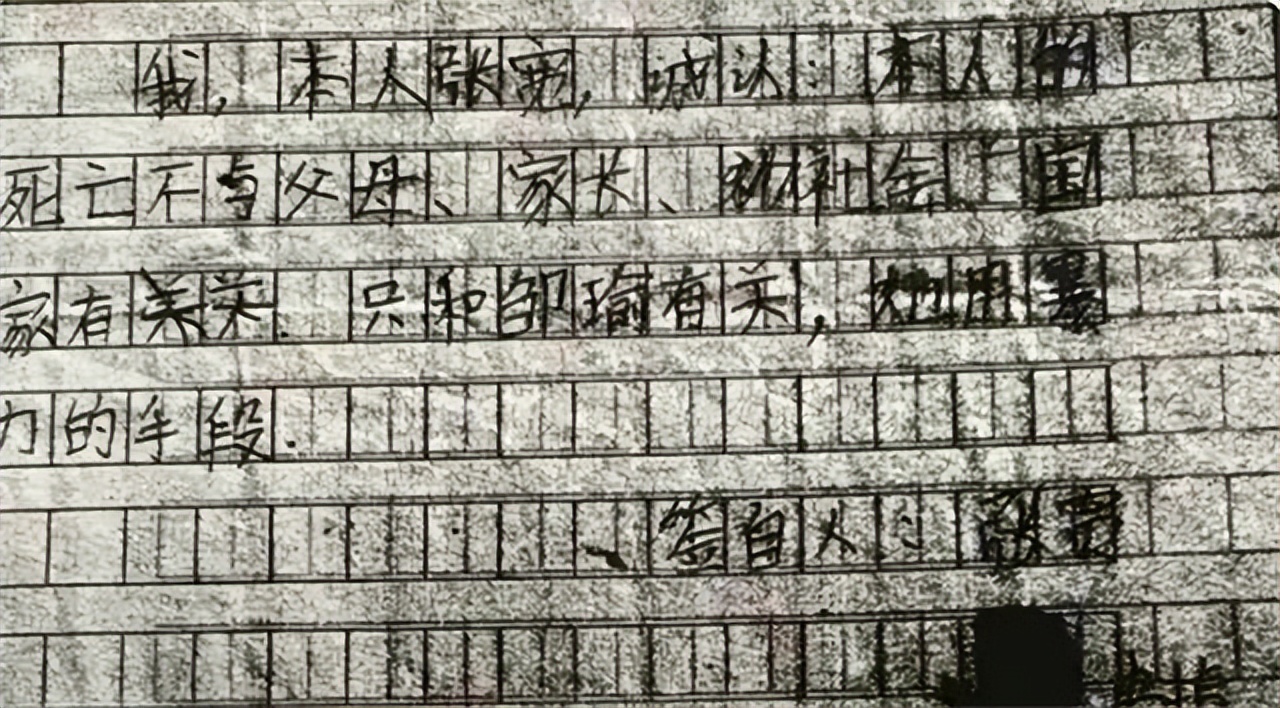 我,本人张宽,诚认:本人的
死亡不与父母、家长、社会、国
家有关.只和邹瑜有关,他用暴
力的手段.
签自人:张宽